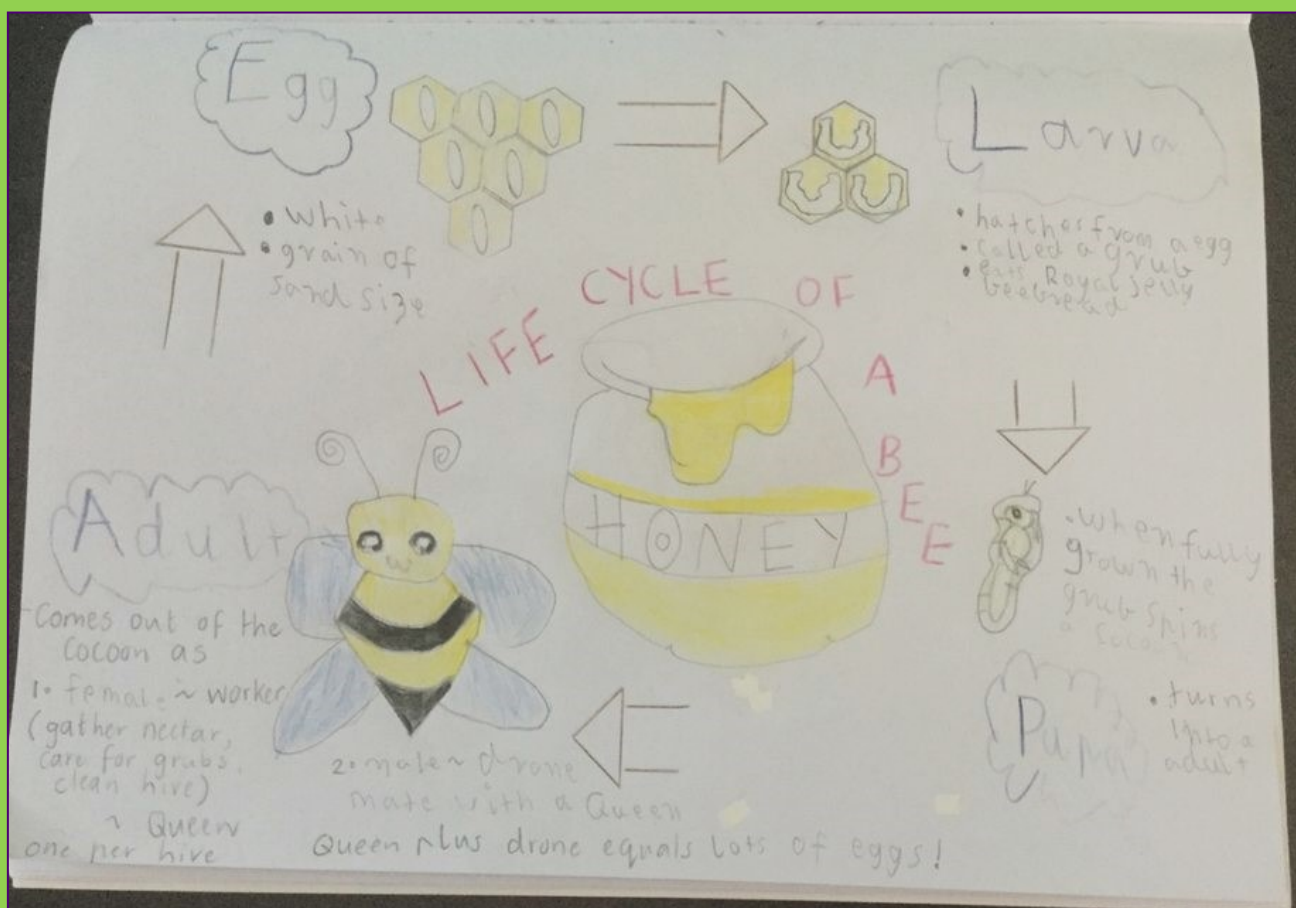 LIFE CYCLE OF A BEE
Egg
• white
• grain of
sand size
Larva
• hatches from a egg
• called a grub
• eats Royal jelly
beebread
• when fully
grown the
grub spins
a cocoon
Pupa
• turns
into a
adult
Adult
Comes out of the
cocoon as
1. female ~ worker
(gather nectar,
care for grubs,
clean hive)
~ Queen
one per hive
2. male ~ drone
mate with a Queen
Queen plus drone equals lots of eggs!
HONEY